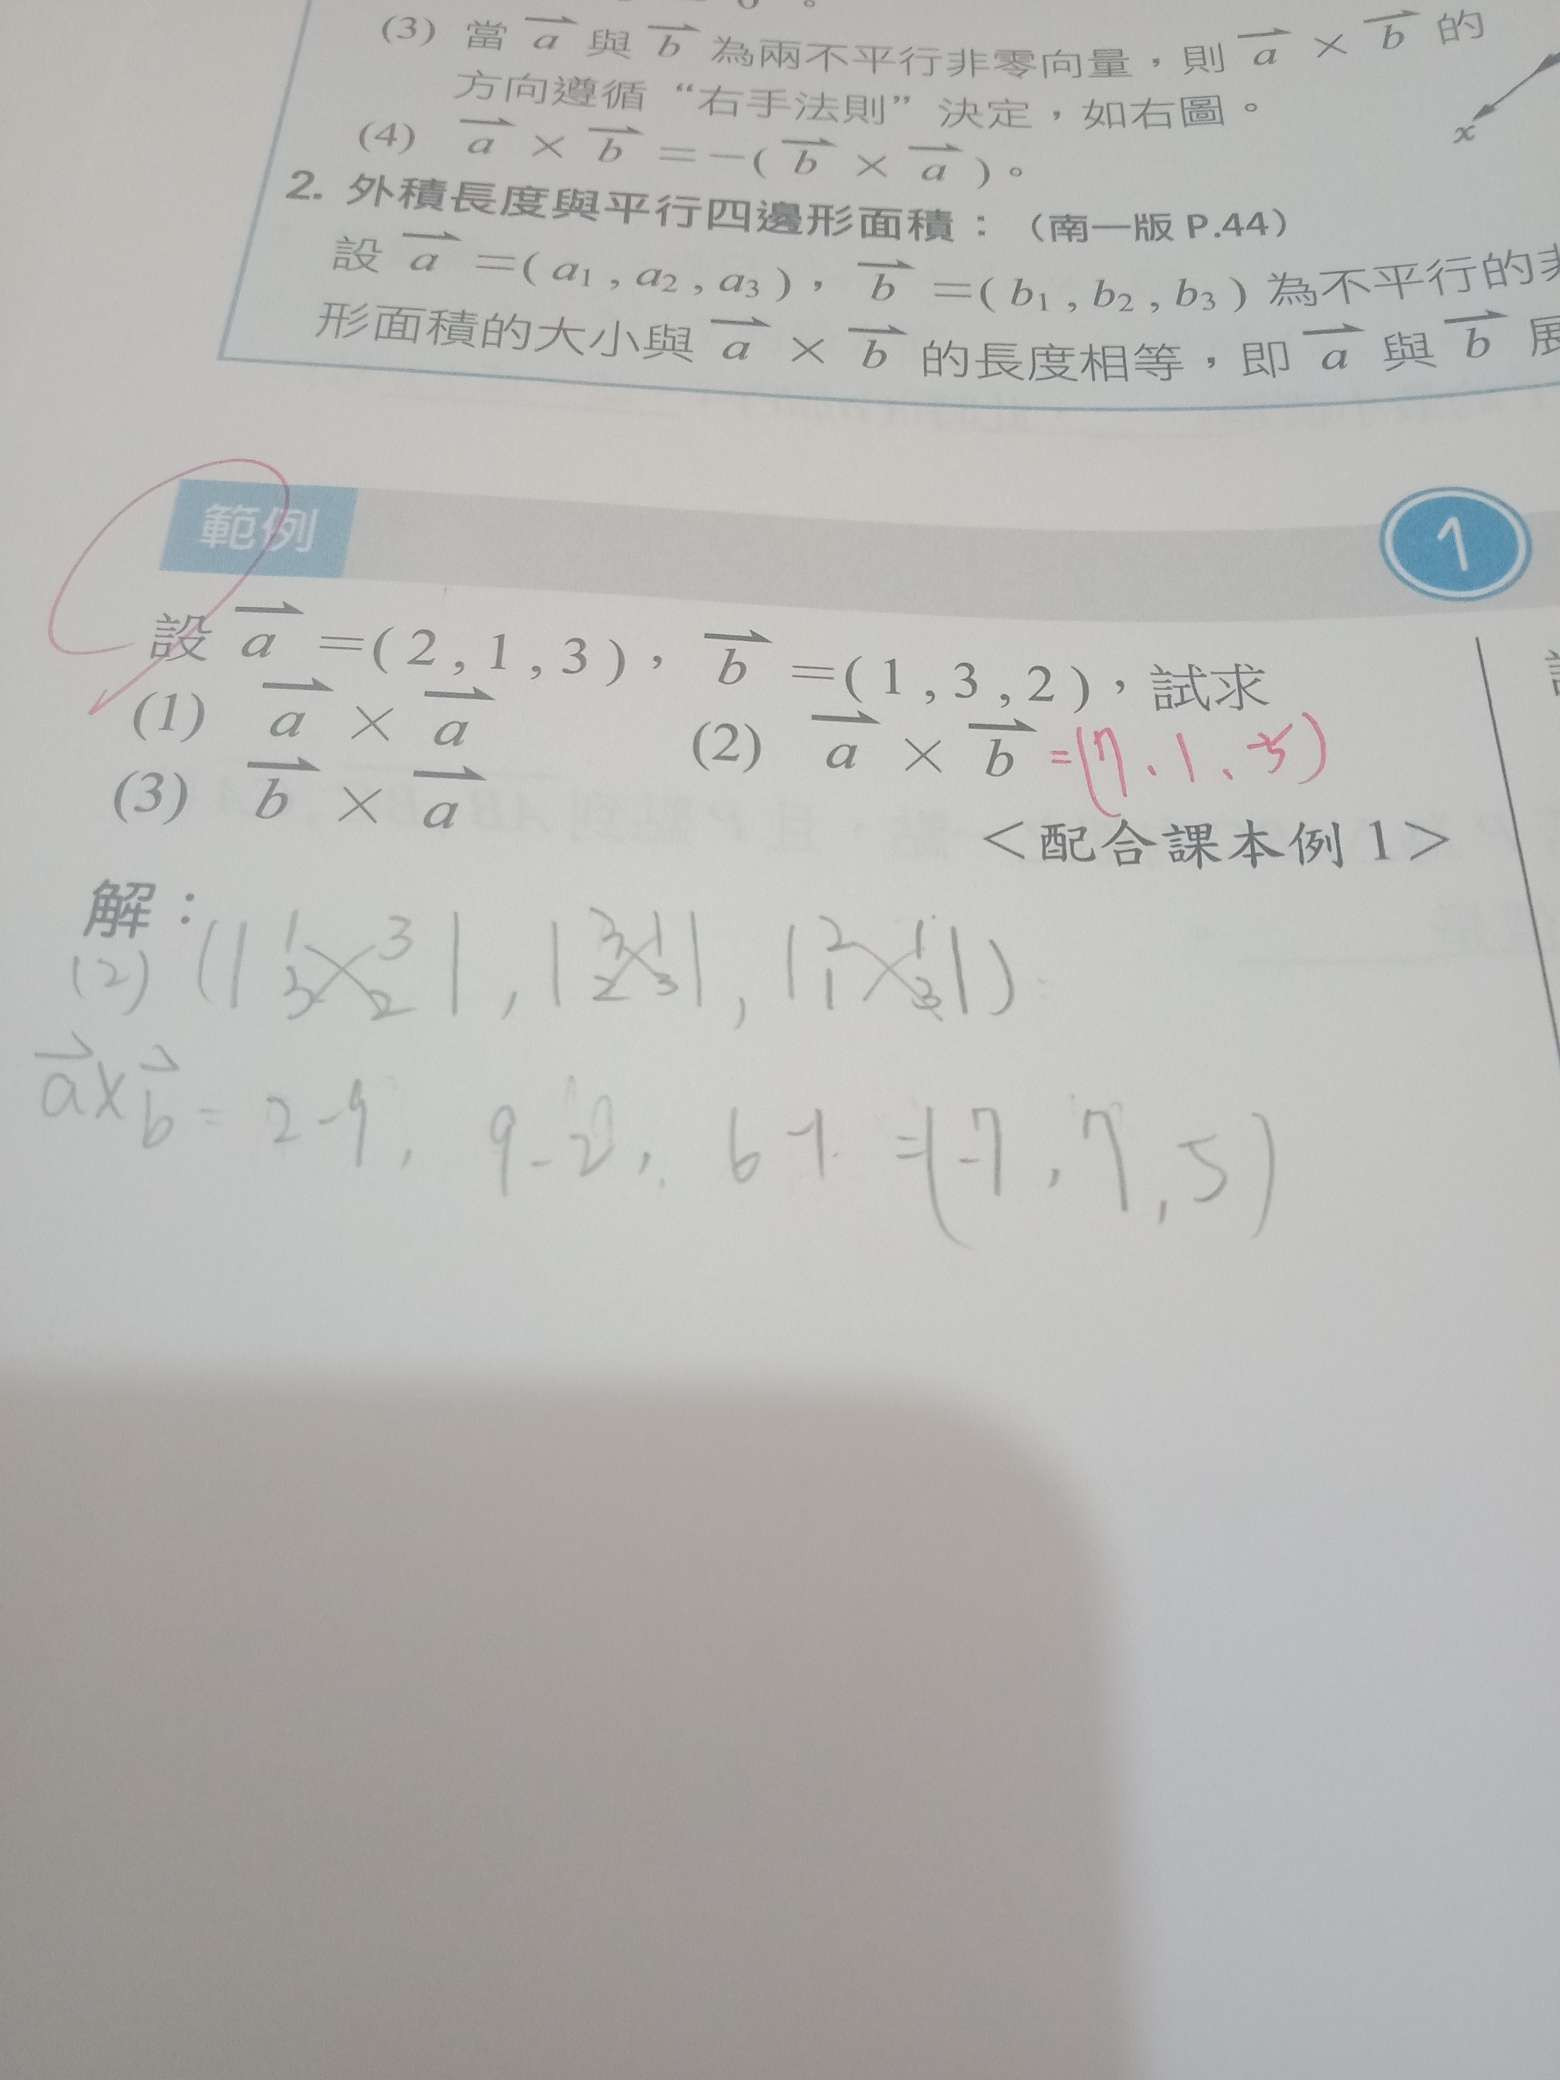 (3) 當 a 與 b 為兩不平行非零向量，則 a × b 的
方向遵循“右手法則”決定，如右圖。
x
(4) a × b ＝－( b × a )。
2. 外積長度與平行四邊形面積：（南一版 P.44）
設 a ＝( a₁ , a₂ , a₃ )， b ＝( b₁ , b₂ , b₃ ) 為不平行的
形面積的大小與 a × b 的長度相等，即 a 與 b 展
範例 1
設 a ＝( 2 , 1 , 3 )， b ＝( 1 , 3 , 2 )，試求
(1) a × a (2) a × b =(7、1、-5)
(3) b × a
＜配合課本例 1＞
解：
(2) (|1 3|, |3 1|, |2 1|)
3 2 2 3 1 3
a×b = 2-9, 9-2, 6-1 =(-7, 7, 5)